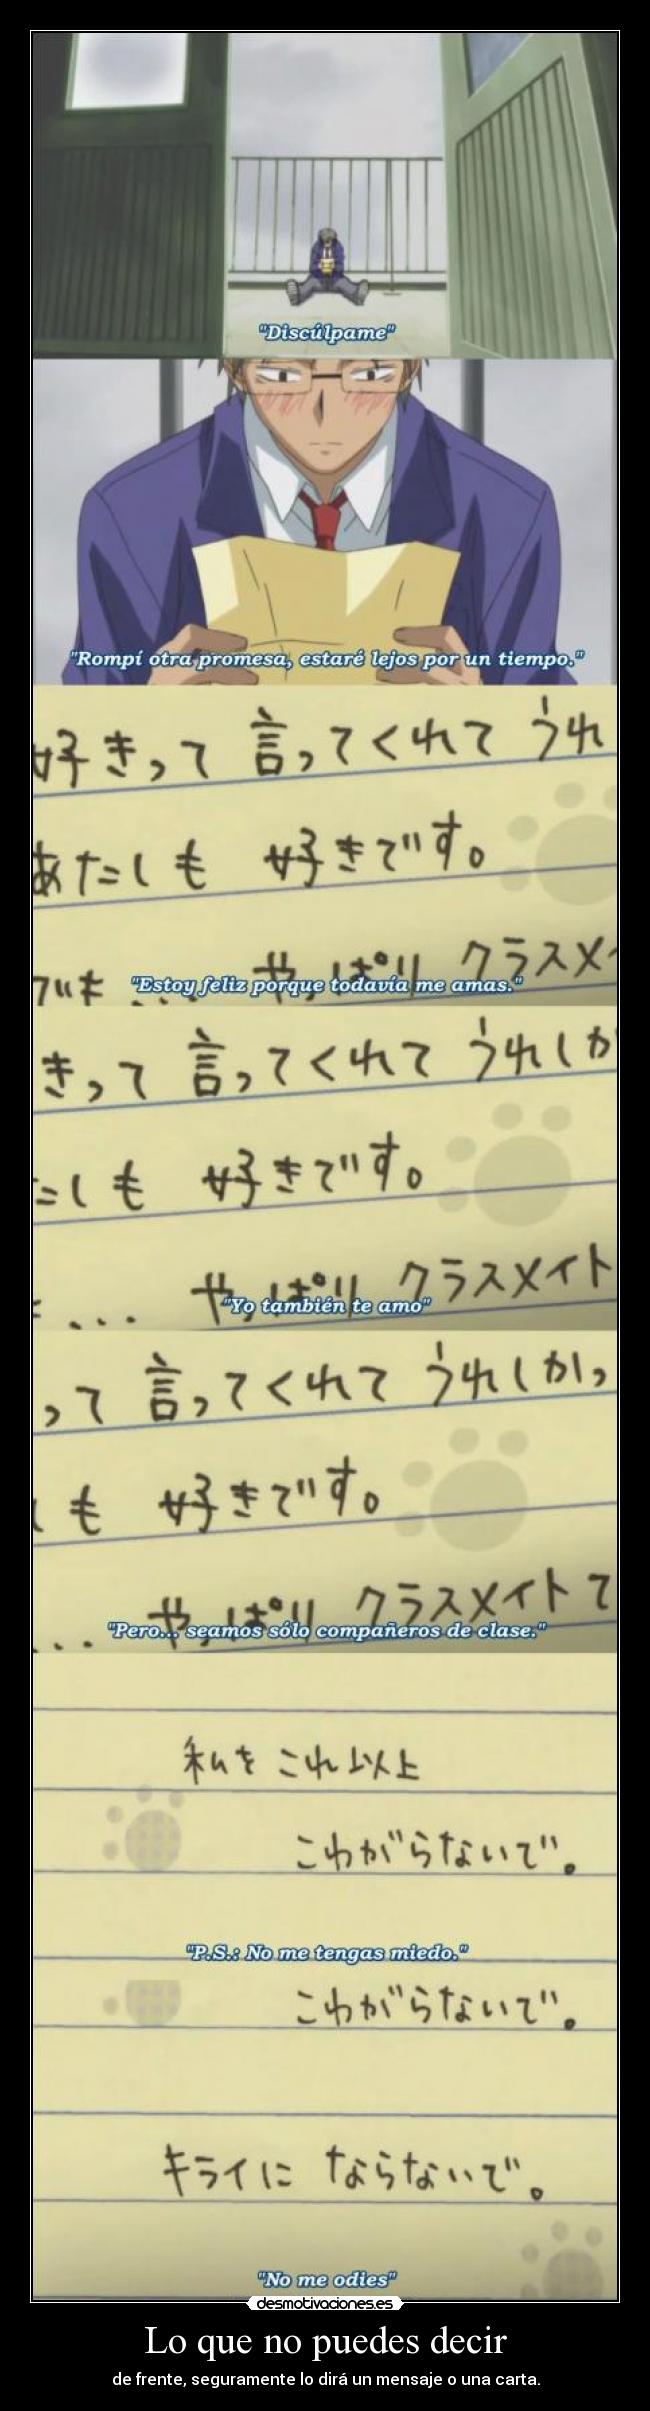 "Discúlpame"
"Rompí otra promesa, estaré lejos por un tiempo."
好きって 言ってくれて うれ
あたしも 好きです。
でも... やっぱり クラスメイ
"Estoy feliz porque todavía me amas."
きって 言ってくれて うれしか
たしも 好きです。
... やっぱり クラスメイト
"Yo también te amo"
って 言ってくれて うれしかっ
しも 好きです。
... やっぱり クラスメイトで
"Pero... seamos sólo compañeros de clase."
私を これ以上
こわがらないで。
"P.S.: No me tengas miedo."
こわがらないで。
キライに ならないで。
"No me odies"
desmotivaciones.es
Lo que no puedes decir
de frente, seguramente lo dirá un mensaje o una carta.